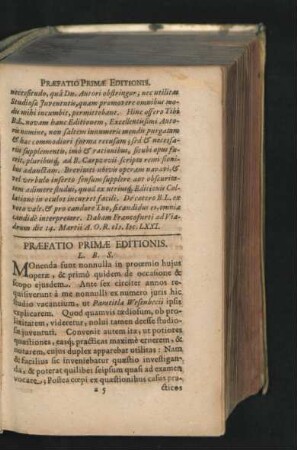 PRÆFATIO PRIMÆ EDITIONIS.
necessitudo, quâ Dn. Autori obstringor, nec utilitas
Studiosæ Juventutis, quam promovere omnibus mo-
dis mihi incumbit, permittebant. Hinc offero Tibi
B.L. novam hanc Editionem, Excellentissimi Auto-
ris nomine, non saltem innumeris mendis purgatam
& hac commodiori forma recusam; sed & necessa-
riis supplementis, imò & rationibus, sicubi opus fu-
erit, pluribusq; ad B. Carpzovii scripta remissioni-
bus adauctam. Brevitati ubivis operam navavi, &
vel verbulo inserto sensum supplere aut obscurita-
tem adimere studui, quod ex utriusq; Editionis Col-
latione in oculos incurret facilè. De cætero B.L. ex
voto vale, & pro candore Tuo, si candidus es, omnia
candidè interpretere. Dabam Francofurti ad Vi-
adrum die 14. Martii A. O. R. clɔ. lɔc. LXXI.
PRÆFATIO PRIMÆ EDITIONIS.
L. B. S.
MOnenda sunt nonnulla in proœmio hujus
operæ, & primò quidem de occasione &
scopo ejusdem. Ante sex circiter annos re-
quisiverunt à me nonnulli ex numero juris hic
studio vacantium, ut Paratitla Wesenbecii ipsis
explicarem. Quod quamvis tædiosum, ob pro-
lixitatem, videretur, nolui tamen deesse studio-
sis juventuti. Convenit autem ita, ut potiores
quæstiones, easq; practicas maximè eruerem, &
notarem, cujus duplex apparebat utilitas: Nam
& facilius sic inveniebatur quæstio investigan-
da, & poterat quilibet seipsum quasi ad examen
vocare. Postea cœpi ex quæstionibus casus pra-
a 5 cticos